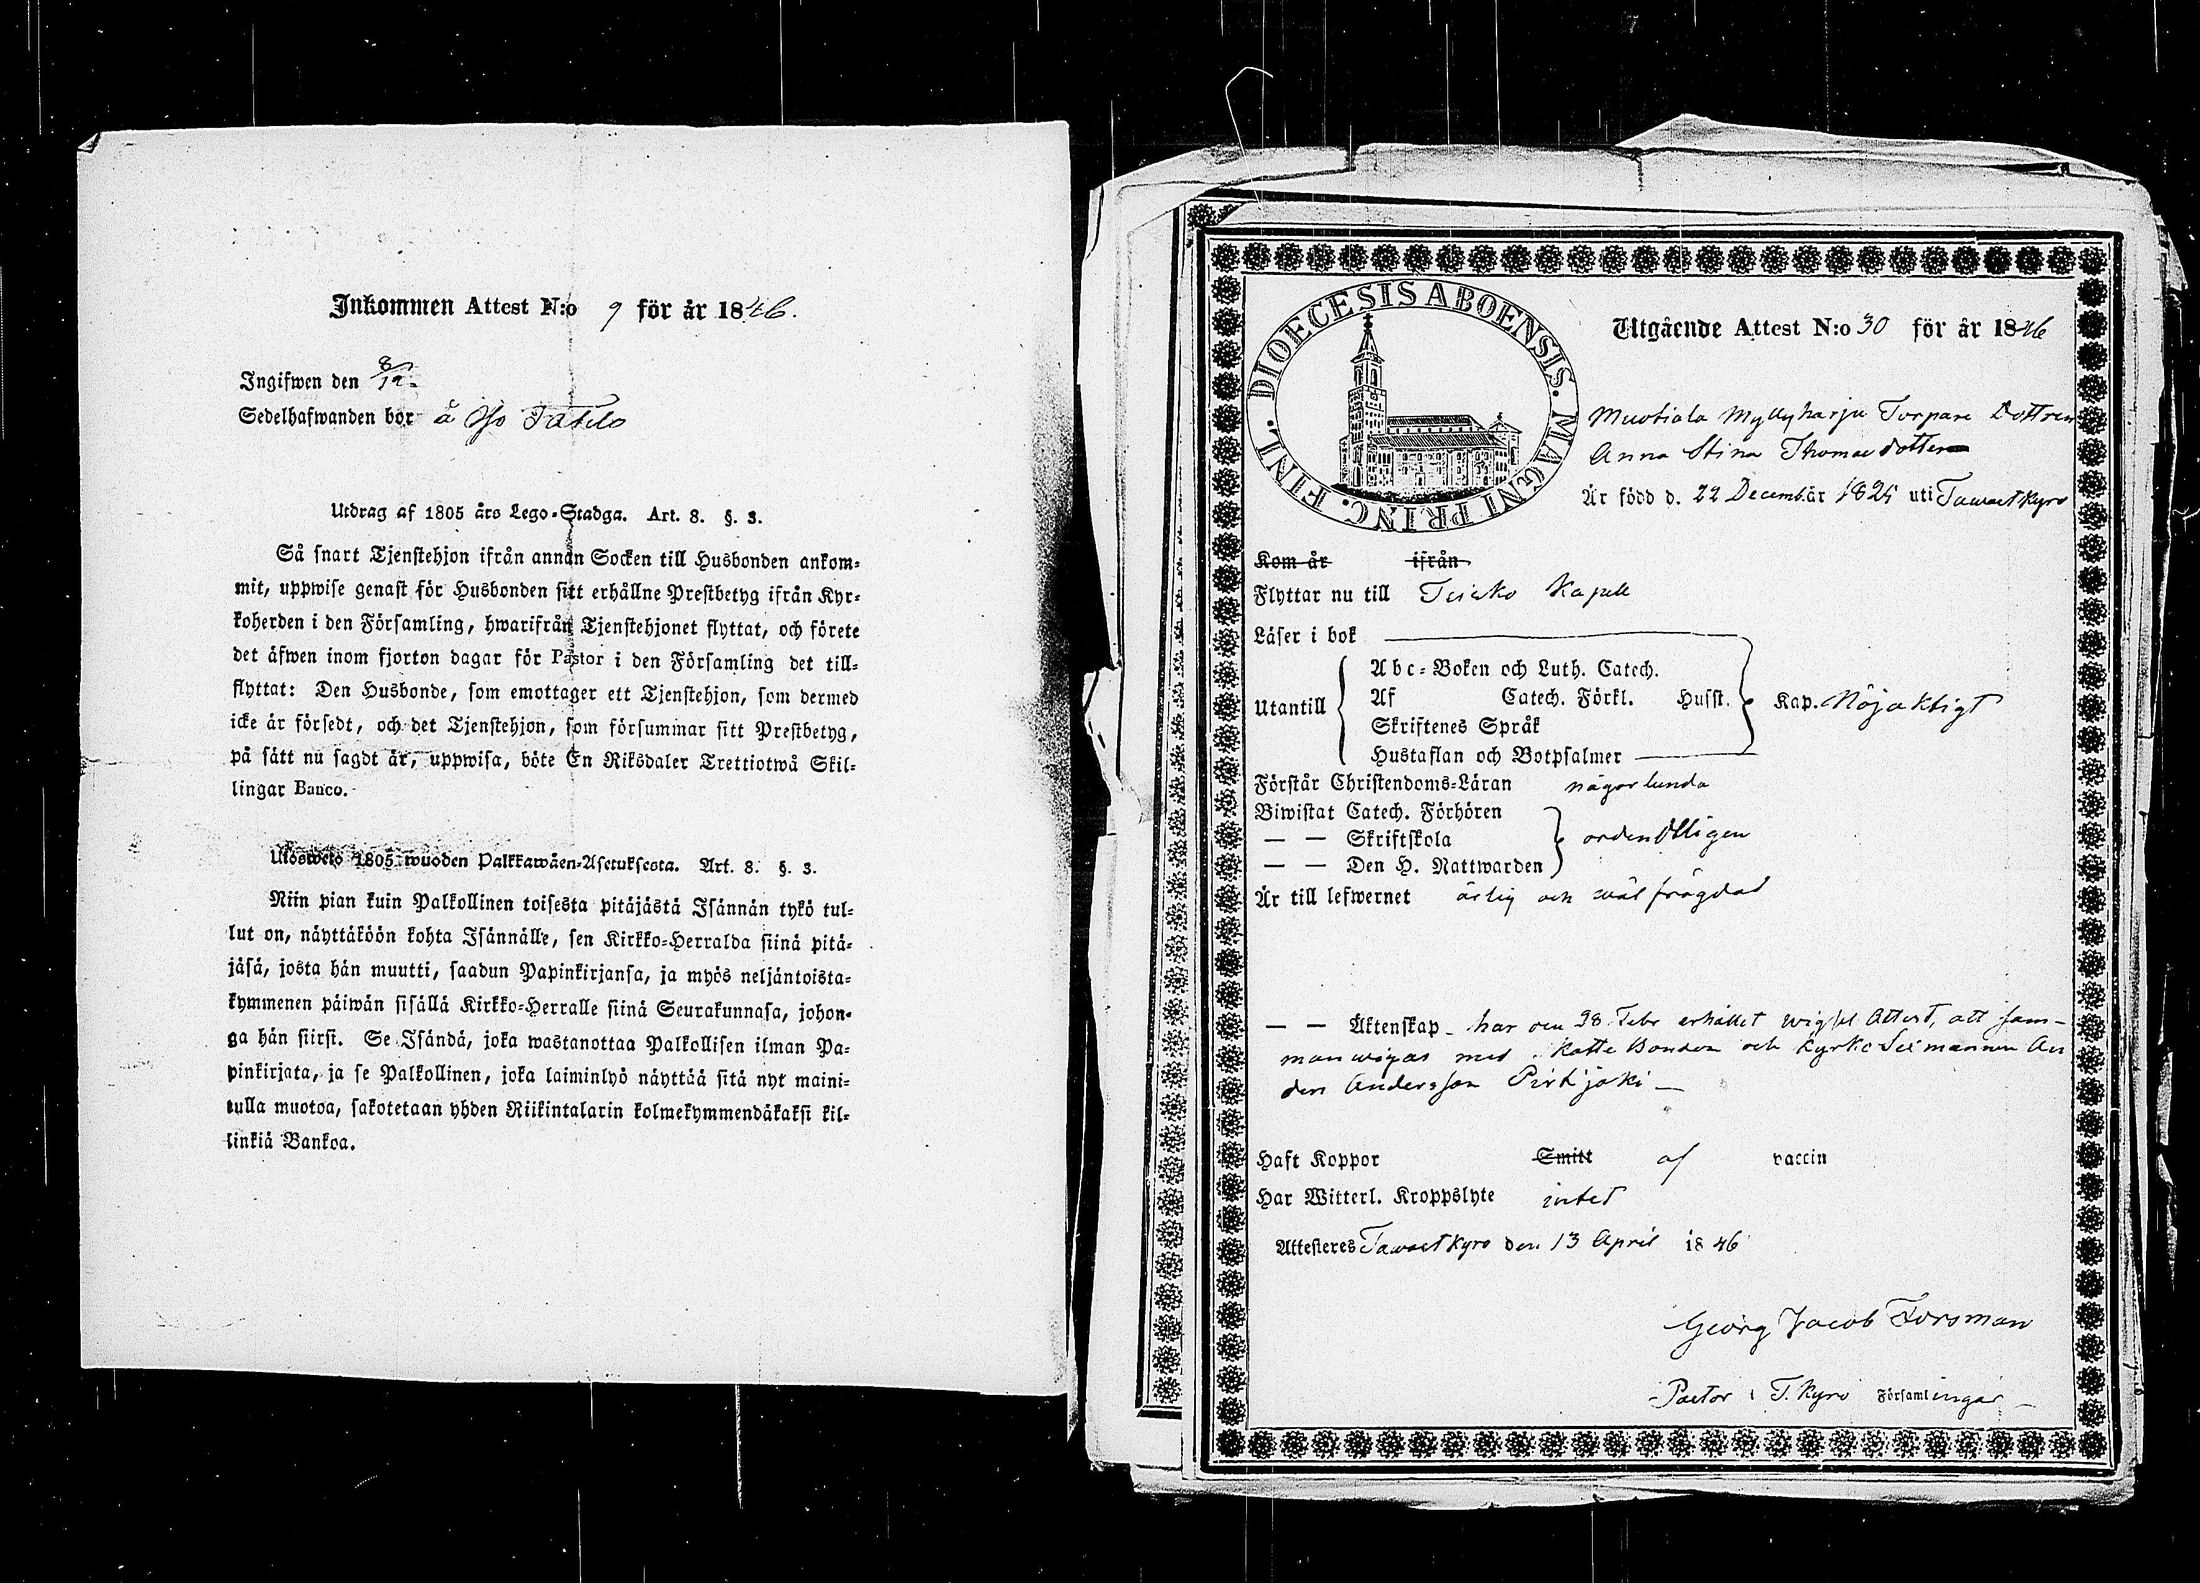 Inkommen Attest N:o 9 för år 1846.
Ingifwen den 8/12
Sedelhafwanden bor å
Utdrag af 1805 års Lego-Stadga. Art. 8. §. 3.
Så snart Tjenstehjon ifrån annan Socken till Husbonden ankom-
mit, uppwise genast för Husbonden sitt erhållne Prestbetyg ifrån Kyr-
koherden i den Församling, hwarifrån Tjenstehjonet flyttat, och förete
det äfwen inom fjorton dagar för Pastor i den Församling det till-
flyttat: Den Husbonde, som emottager ett Tjenstehjon, som dermed
icke är försedt, och det Tjenstehjon, som försummar sitt Prestbetyg,
på sätt nu sagdt är, uppwisa, böte En Riksdaler Trettiotwå Skil-
lingar Banco.
Ulosweto 1805 wuoden Palkkawäen-Asetuksesta. Art. 8. §. 3.
Niin pian kuin Palkollinen toisesta pitäjästä Isännän tykö tul-
lut on, näyttäköön kohta Isännälle, sen Kirkko-Herralda siinä pitä-
jäsä, josta hän muutti, saadun Papinkirjansa, ja myös neljäntoista-
kymmenen päiwän sisällä Kirkko-Herralle siinä Seurakunnasa, johon-
ga hän siirsi. Se Isändä, joka wastanottaa Palkollisen ilman Pa-
pinkirjata, ja se Palkollinen, joka laiminlyö näyttää sitä nyt maini-
tulla muotoa, sakotetaan yhden Riikintalarin kolmekymmendäkaksi kil-
linkiä Bankoa.
DIOECESIS ABOENSIS. MAGNI PRINC. FINL.
Utgående Attest N:o 30 för år 1846
Muotiala Myllyharju Torpare Dottren
Anna Stina Thomasdotter
Är född d. 22 Decemb. år 1825 uti Tawastkyro
Kom år ifrån
Flyttar nu till Teisko Kapell
Läser i bok
Utantill
Abc-Boken och Luth. Catech.
Af Catech. Förkl. Husst. Kap. Nöjaktigt
Skriftenes Språk
Hustaflan och Botpsalmer
Förstår Christendoms-Läran någorlunda
Biwistat Catech. Förhören
— — Skriftskola ordentligen
— — Den H. Nattwarden
Är till lefwernet ärlig och wäl frägdad
— — Äktenskap har den 28 Febr erhållet Attest, att sam-
man wigas med Bonden och An
ders Andersson Pirttjoki —
Haft Koppor Smitt af vaccin
Har Witterl. Kroppslyte intet
Attesteres Tawastkyro den 13 April 1846
Georg Jacob Forsman
Pastor i T. Kyro Församlingar